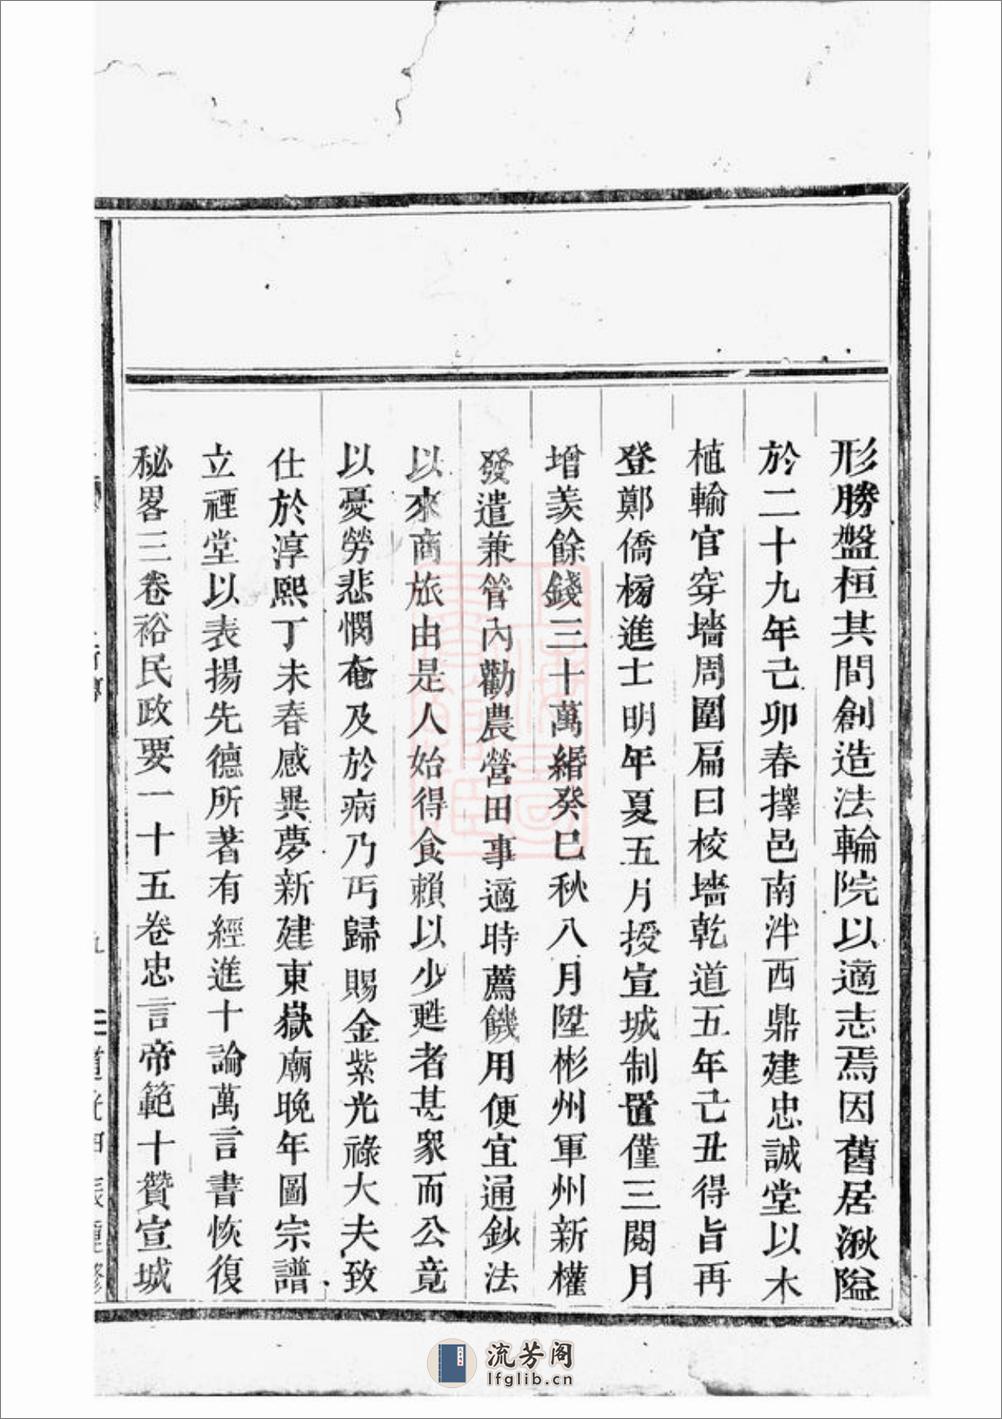 形勝盤桓其間創造法輪院以適志焉因舊居湫隘
於二十九年己卯春擇邑南泮西鼎建忠誠堂以木
植輸官穿墻周圍扁曰校墻乾道五年己丑得旨再
登鄭僑榜進士明年夏五月授宣城制置僅三閱月
增羨餘錢三十萬緡癸巳秋八月陞彬州軍州新權
發遣兼管內勸農營田事適時薦饑用便宜通鈔法
以來商旅由是人始得食賴以少甦者甚衆而公竟
以憂勞悲憫奄及於病乃丐歸賜金紫光祿大夫致
仕於淳熙丁未春感異夢新建東嶽廟晚年圖宗譜
立禋堂以表揚先德所著有經進十論萬言書恢復
秘畧三卷裕民政要一十五卷忠言帝範十贊宣城
流芳阁
lfglib.cn